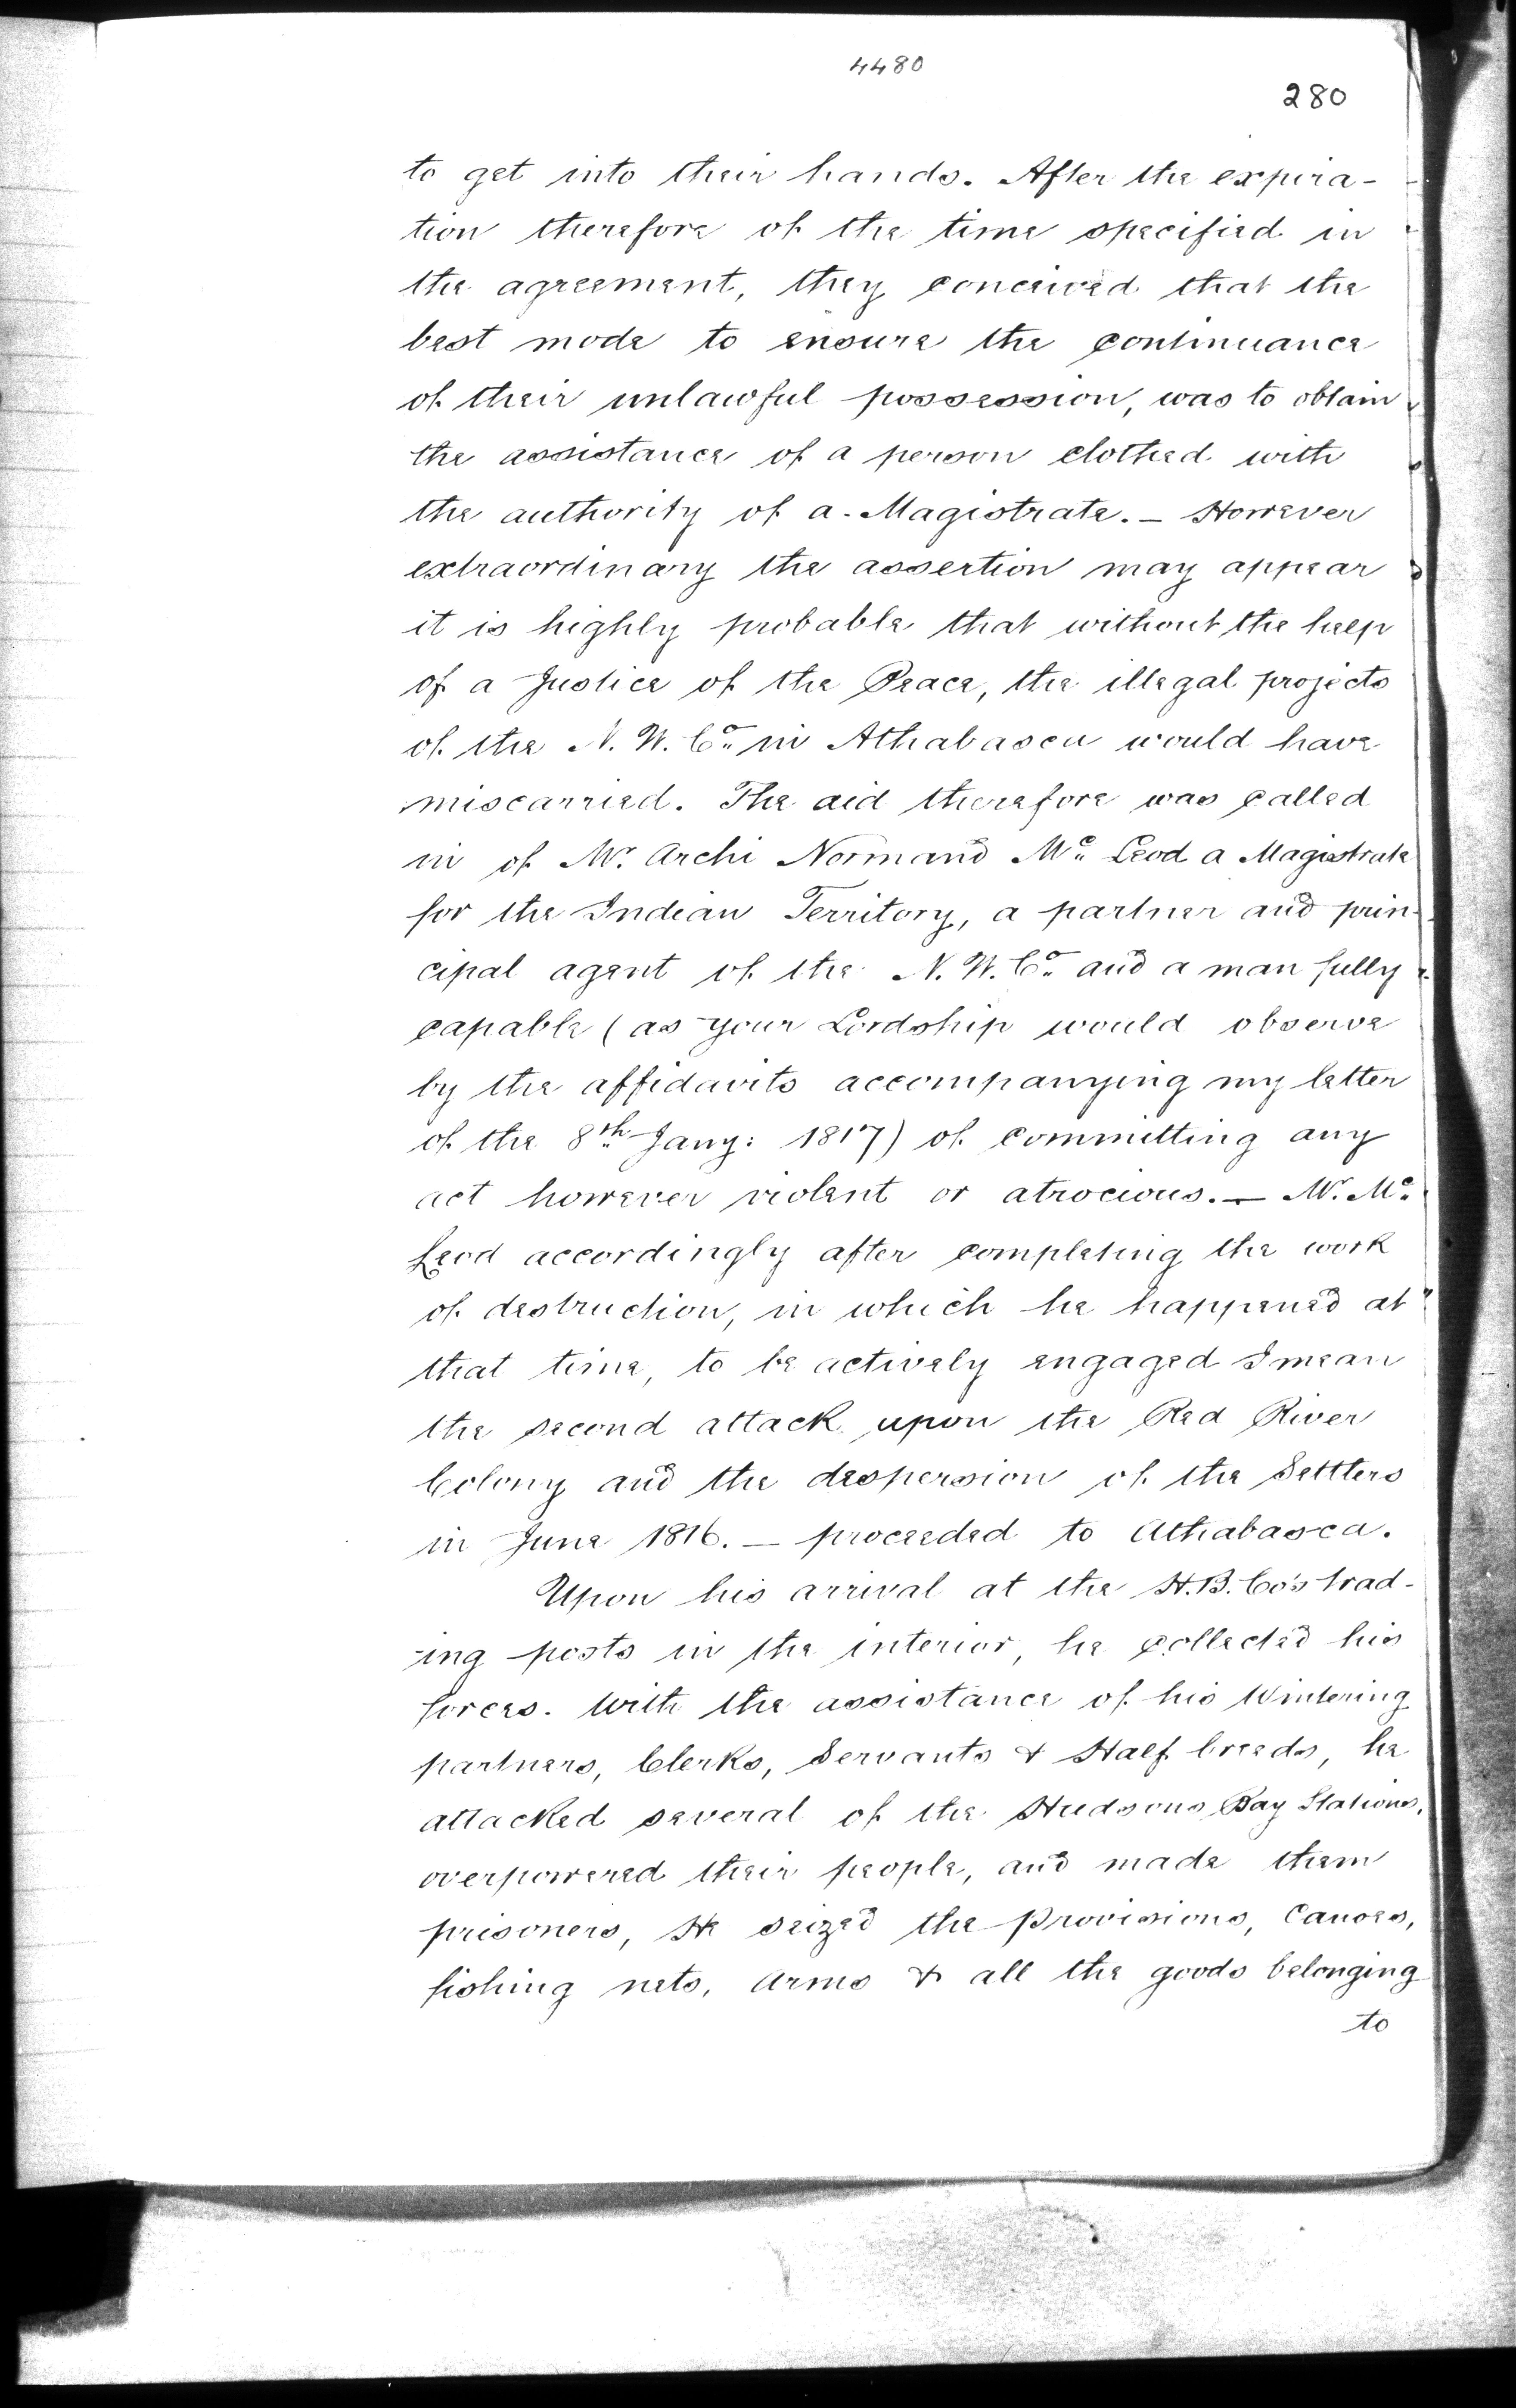 4480
280
to get into their hands. After the expira-
tion therefore of the time specified in
the agreement, they conceived that the
best mode to ensure the continuance
of their unlawful possession, was to obtain
the assistance of a person clothed with
the authority of a Magistrate. – However
extraordinary the assertion may appear
it is highly probable that without the help
of a Justice of the Peace, the illegal projects
of the N. W. Co. in Athabasca would have
miscarried. The aid therefore was called
in of Mr. Archi Normand Mc. Leod a Magistrate
for the Indian Territory, a partner and prin-
cipal agent of the N. W. Co. and a man fully
capable (as your Lordship would observe
by the affidavits accompanying my letter
of the 8th Jany: 1817) of committing any
act however violent or atrocious. – Mr. Mc.
Leod accordingly after completing the work
of destruction, in which he happened at
that time, to be actively engaged I mean
the second attack upon the Red River
Colony and the despersion of the Settlers
in June 1816. – proceeded to Athabasca.
Upon his arrival at the H.B. Co's trad-
ing posts in the interior, he collected his
forces. With the assistance of his Wintering
partners, Clerks, Servants & Half breeds, he
attacked several of the Hudsons Bay Stations,
overpowered their people, and made them
prisoners, He seized the Provisions, Canoes,
fishing nets, Arms & all the goods belonging
to